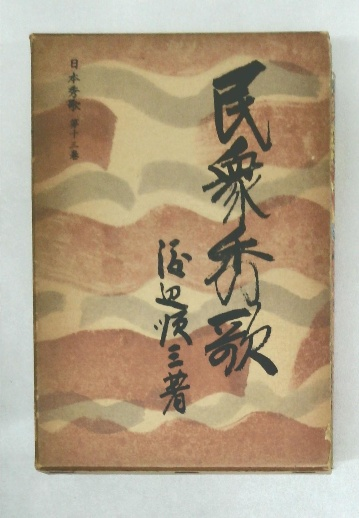 民衆秀歌
渡辺順三著
日本秀歌 第十二巻